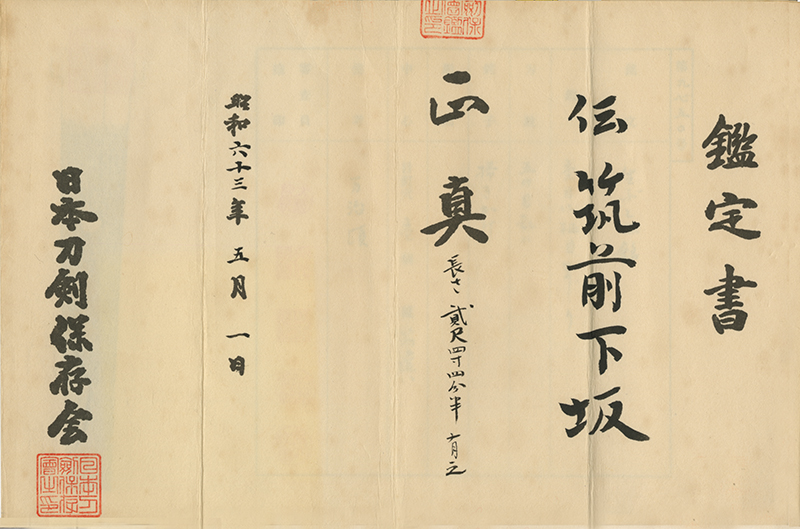 鑑定書
伝 筑前下坂
正真
長さ 貳尺四寸四分半 有之
昭和六十三年 五月 一日
日本刀剣保存会
日本刀
剣保存
會之印